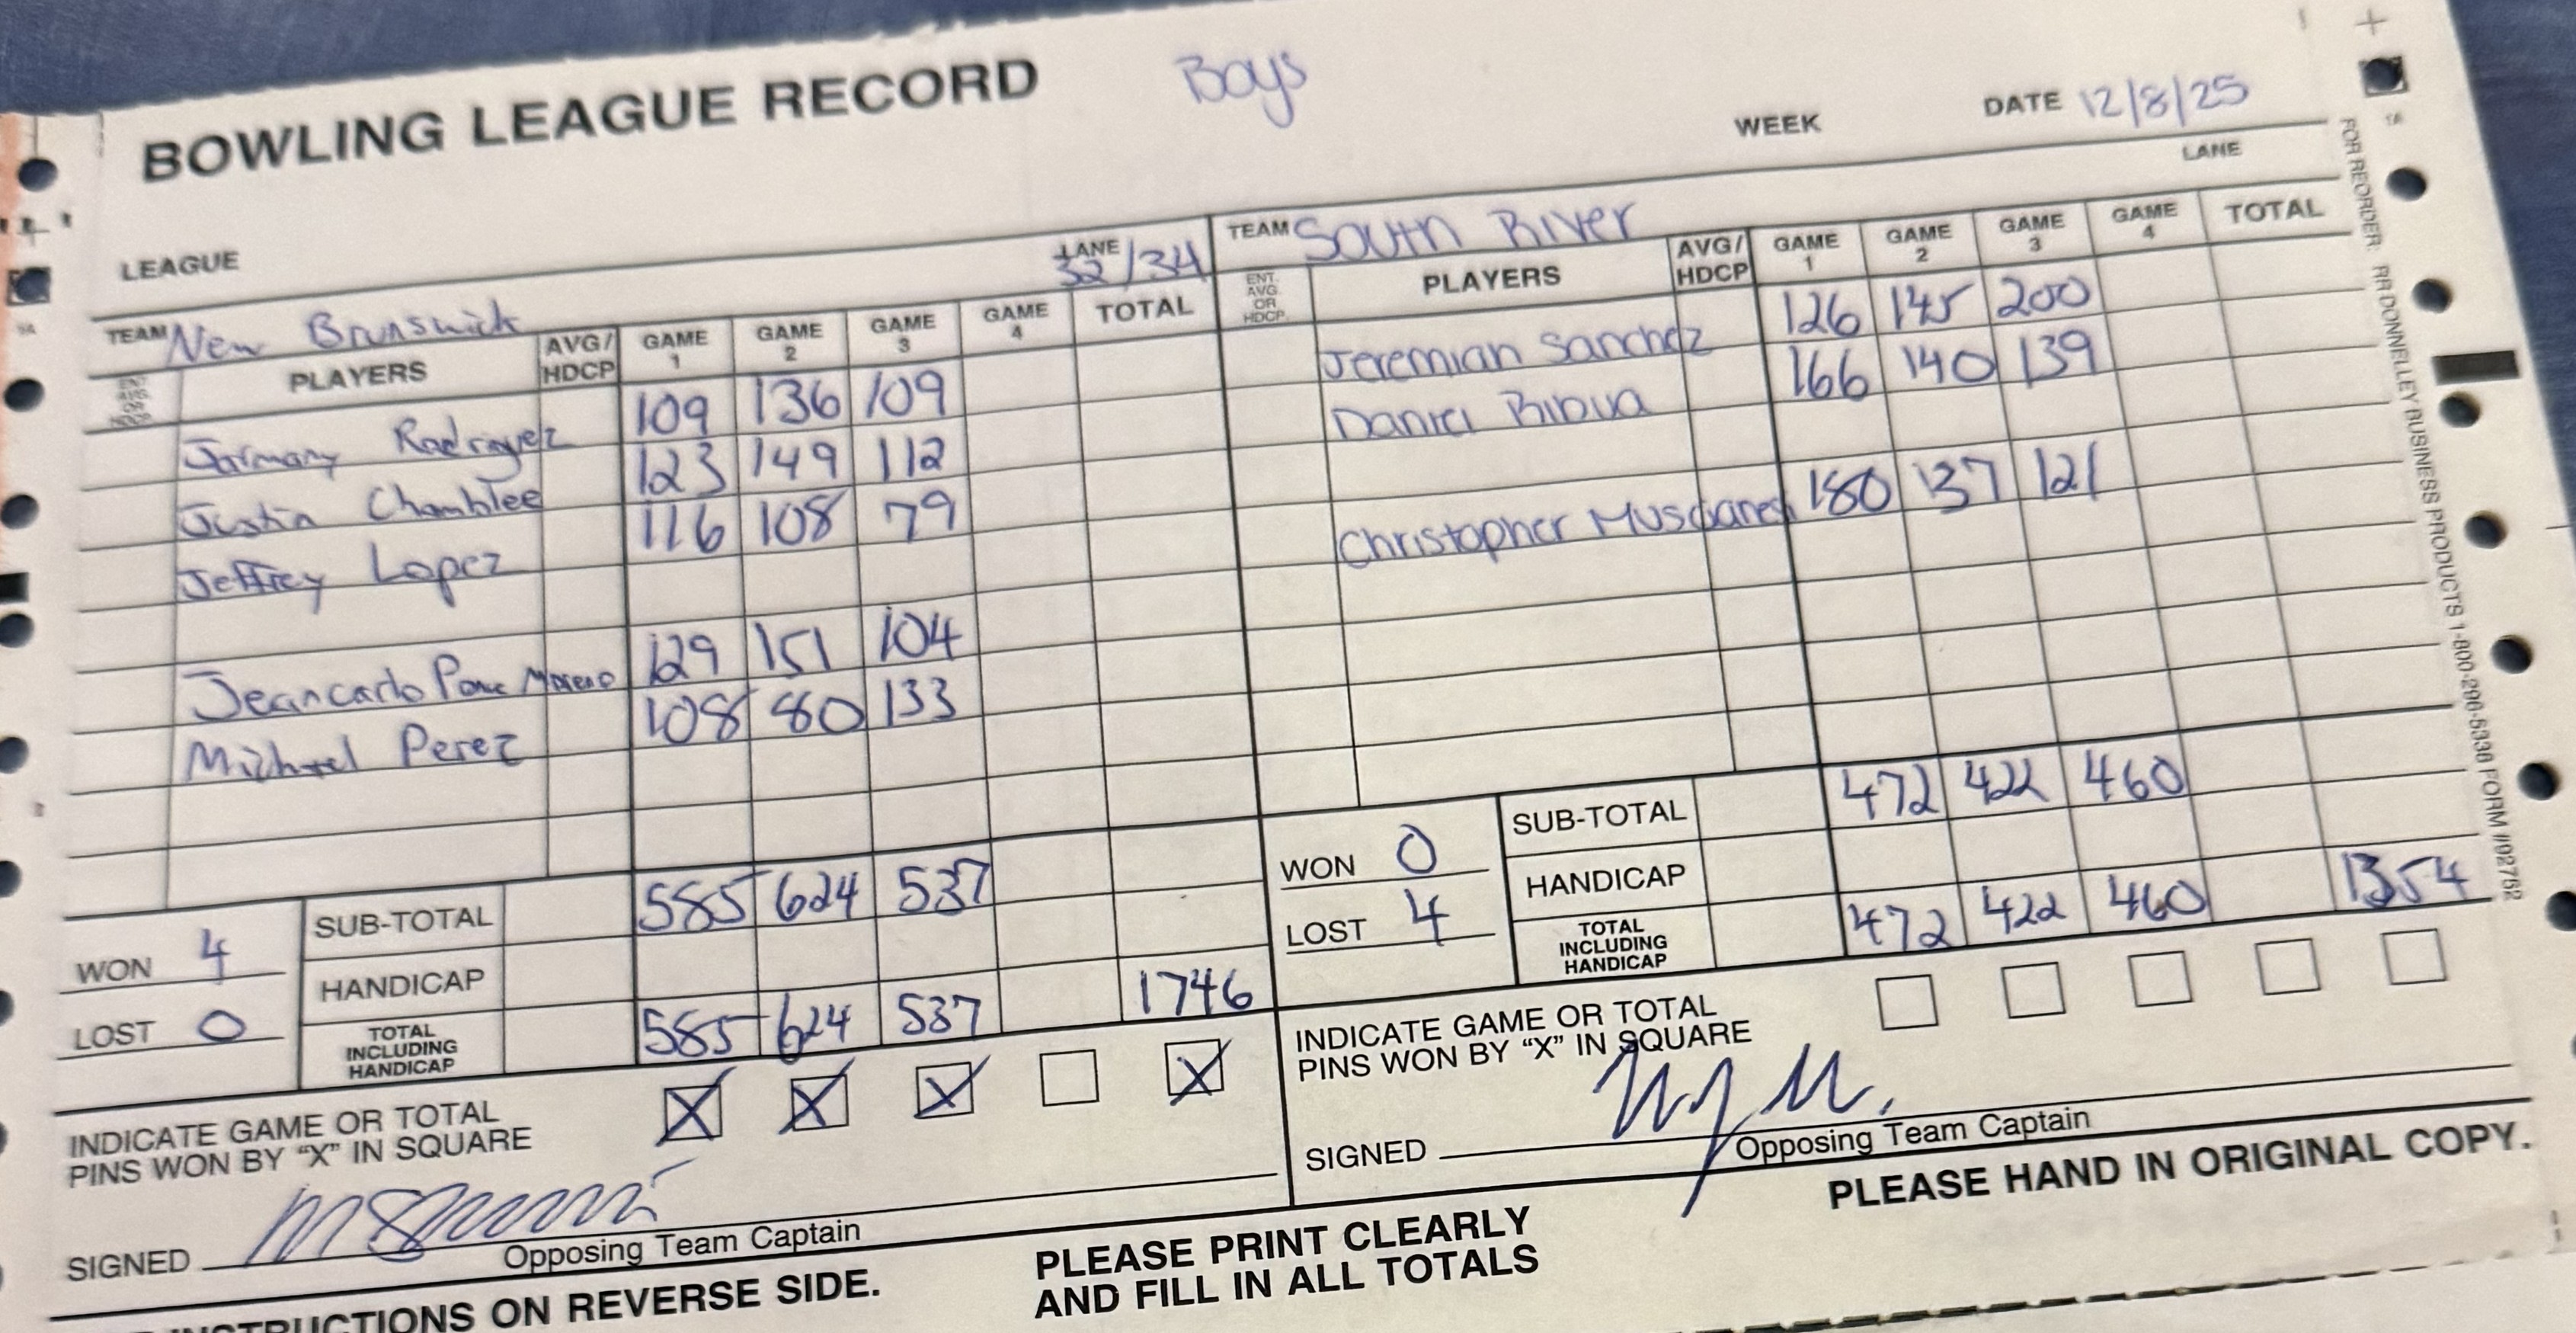 BOWLING LEAGUE RECORD Boys
WEEK DATE 12/8/25
LEAGUE LANE 32/34
LANE
TEAM New Brunswick
ENT. AVG. OR HDCP. PLAYERS AVG/ HDCP GAME 1 GAME 2 GAME 3 GAME 4 TOTAL
109 136 109
Justin Chamblee 123 149 112
Jeffrey Lopez 116 108 79
Jeancarlo Ponce Moreno 129 151 104
Michael Perez 108 80 133
WON 4
LOST 0
SUB-TOTAL 585 624 537
HANDICAP
TOTAL INCLUDING HANDICAP 585 624 537 1746
INDICATE GAME OR TOTAL
PINS WON BY “X” IN SQUARE X X X X
SIGNED
Opposing Team Captain
TEAM South River
ENT. AVG. OR HDCP. PLAYERS AVG/ HDCP GAME 1 GAME 2 GAME 3 GAME 4 TOTAL
Jeremiah Sanchez 126 145 200
Daniel 166 140 139
Christopher 180 137 121
WON 0
LOST 4
SUB-TOTAL 472 422 460
HANDICAP
TOTAL INCLUDING HANDICAP 472 422 460 1354
INDICATE GAME OR TOTAL
PINS WON BY “X” IN SQUARE
SIGNED
Opposing Team Captain
INSTRUCTIONS ON REVERSE SIDE.
PLEASE PRINT CLEARLY
AND FILL IN ALL TOTALS
PLEASE HAND IN ORIGINAL COPY.
FOR REORDER: RR DONNELLEY BUSINESS PRODUCTS 1-800-296-5336 FORM #02752